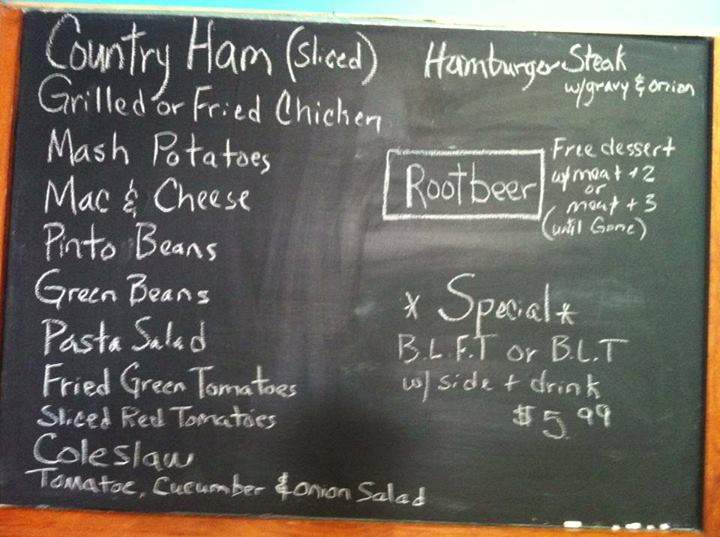 Country Ham (Sliced)
Grilled or Fried Chicken
Mash Potatoes
Mac & Cheese
Pinto Beans
Green Beans
Pasta Salad
Fried Green Tomatoes
Sliced Red Tomatoes
Coleslaw
Tomatoe, Cucumber & Onion Salad
Hamburger Steak
w/gravy & onion
Rootbeer
Free dessert
w/meat +2
or
meat +3
(until Gone)
* Special *
B.L.F.T or B.L.T
w/ side + drink
$5.99